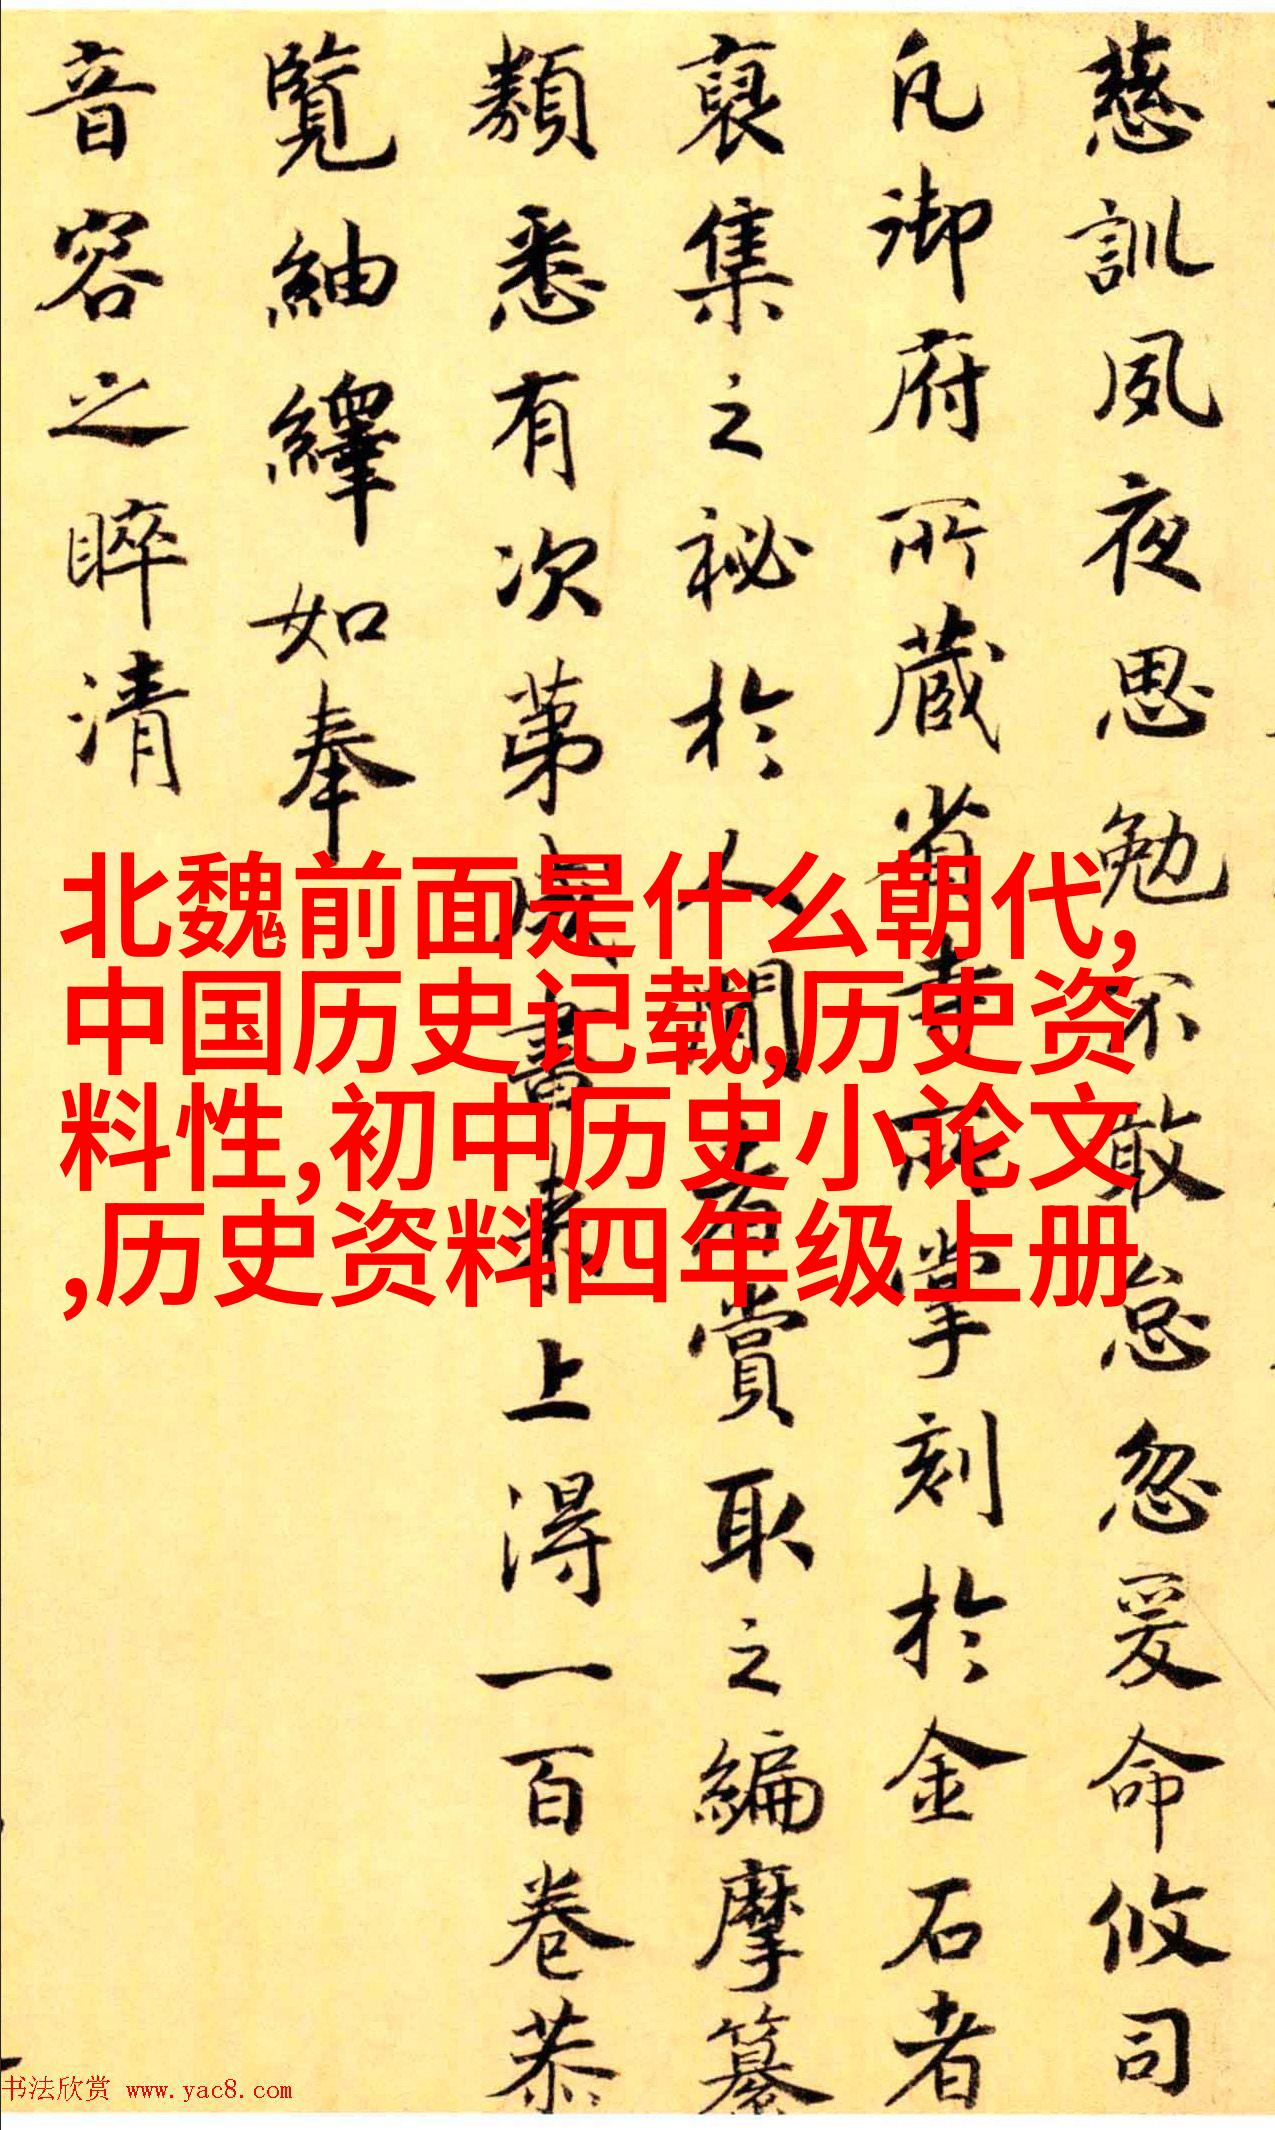 慈訓夙夜思勉不敢怠忽爰命攸司
凡御府所蔵省寺所掌刻於金石者
裒集之祕於人間者賞取之編摩纂
類悉有次第成書来上淂一百卷恭
覧紬繹如奉
音容之睟清
北魏前面是什么朝代,
中国历史记载,历史资
料性,初中历史小论文
,历史资料四年级上册
书法欣赏 www.yac8.com